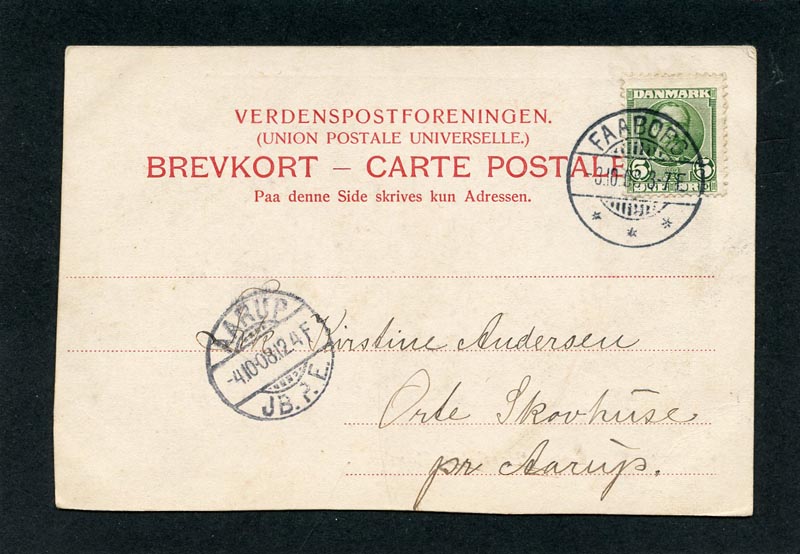 VERDENSPOSTFORENINGEN.
(UNION POSTALE UNIVERSELLE.)
BREVKORT – CARTE POSTALE
Paa denne Side skrives kun Adressen.
DANMARK
5 5
FAABORG
AARUP
-4.10-08.12.4F
JB.P.E.
Frk Kirstine Andersen
Orte Skovhuse
pr Aarup.